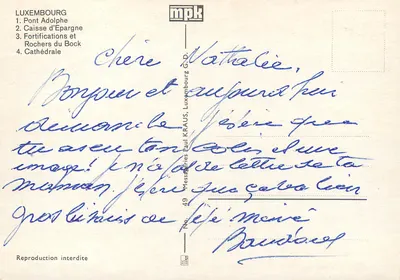 LUXEMBOURG
1. Pont Adolphe
2. Caisse d'Epargne
3. Fortifications et
Rochers du Bock
4. Cathédrale
mpk
Chère Nathalie,
Bonjour et aujourd'hui
dimanche j'espère que
tu as eu ton colis et une
image! je n'ai pas de lettre de ta
maman. j'espère que ça va bien
gros bisous de
No. 49 Messageries Paul KRAUS, Luxembourg G. D.
Reproduction interdite